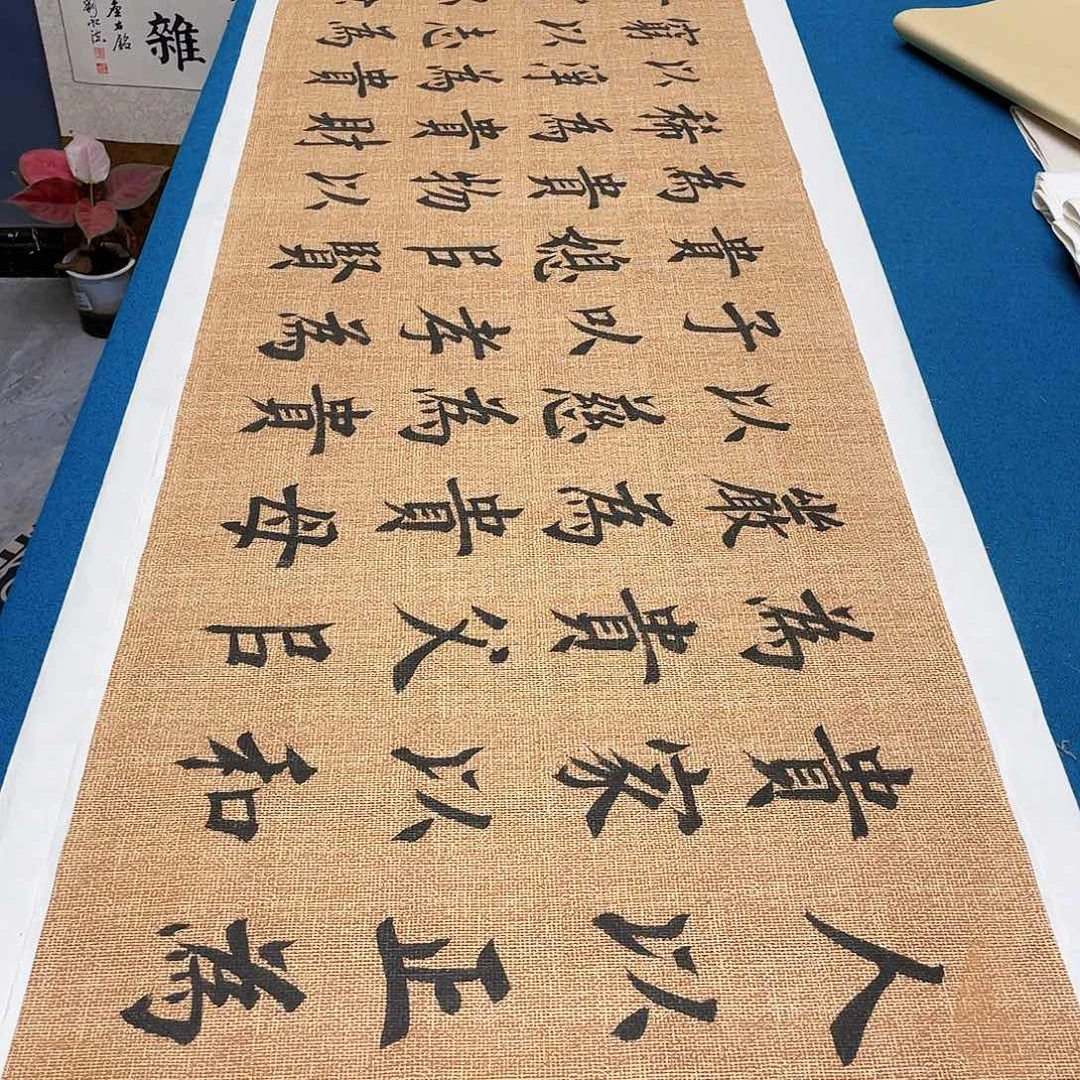 人以正為
貴家以和
為貴父㠯
嚴為貴母
以慈為貴
子以孝為
貴媳㠯賢
為貴物以
稀為貴財
以淨為貴
窮以志為
雜
座右銘